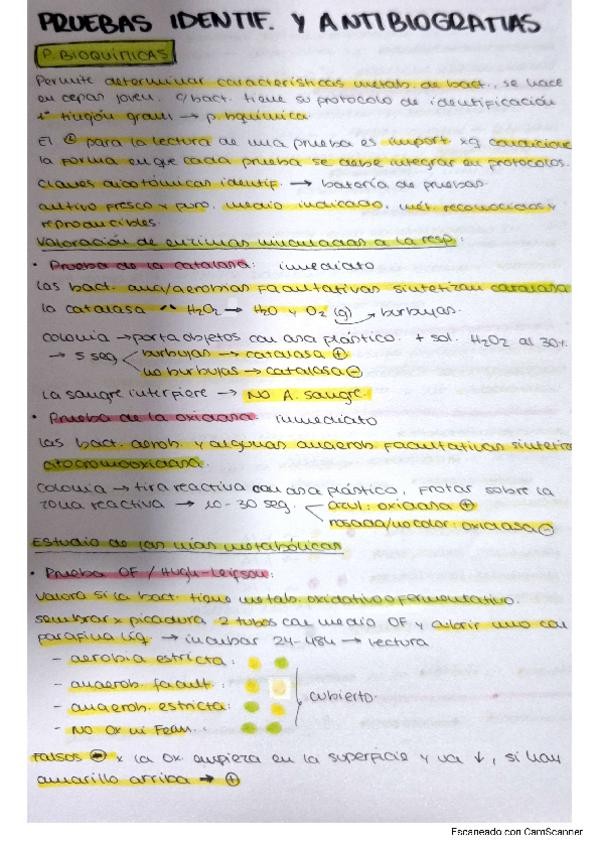 PRUEBAS IDENTIF. Y ANTIBIOGRAFIAS
P. BIOQUÍMICAS
Permite determinar características metab. de bact., se hace
en cepas joven. c/bact. tiene su protocolo de identificación
1º tinción gram → p. bquímica.
El para la lectura de una prueba es import xq condicione
la forma en que cada prueba se debe integrar en protocolos.
Claves dicotómicas identif. → batería de pruebas.
cultivo fresco y puro, medio indicado, mét. reconocidos y
reproducibles.
Valoración de enzimas vinculadas a la resp:
• Prueba de la catalasa: inmediato
las bact. aerobias facultativas sintetizan catalasa
la catalasa H2O2 → H2O y O2 (g) burbujas.
colonia → portaobjetos con asa plástico. + sol. H2O2 al 30%
→ 5 seg burbujas → catalasa +
no burbujas → catalasa -
la sangre interfiere → NO A. sangre.
• Prueba de la oxidasa: inmediato
las bact. aerob. y algunas anaerob facultativas sintetiza
citocromooxidasa.
colonia → tira reactiva con asa plástico, frotar sobre la
zona reactiva → 10-30 seg. azul: oxidasa +
rosado/no color: oxidasa -
Estudio de las vías metabólicas
• Prueba OF / Hugh-Leifson:
valora si la bact. tiene metab. oxidativo o fermentativo.
sembrar x picadura 2 tubos con medio OF y cubrir uno con
parafina líq. → incubar 24-48h → lectura
- aerobia estricta:
- anaerob. facult.:
- anaerob. estricta: cubierto.
- No Ox ni Ferm.:
Falsos - x la ox. empieza en la superficie y va ↓, si hay
amarillo arriba → +
Escaneado con CamScanner